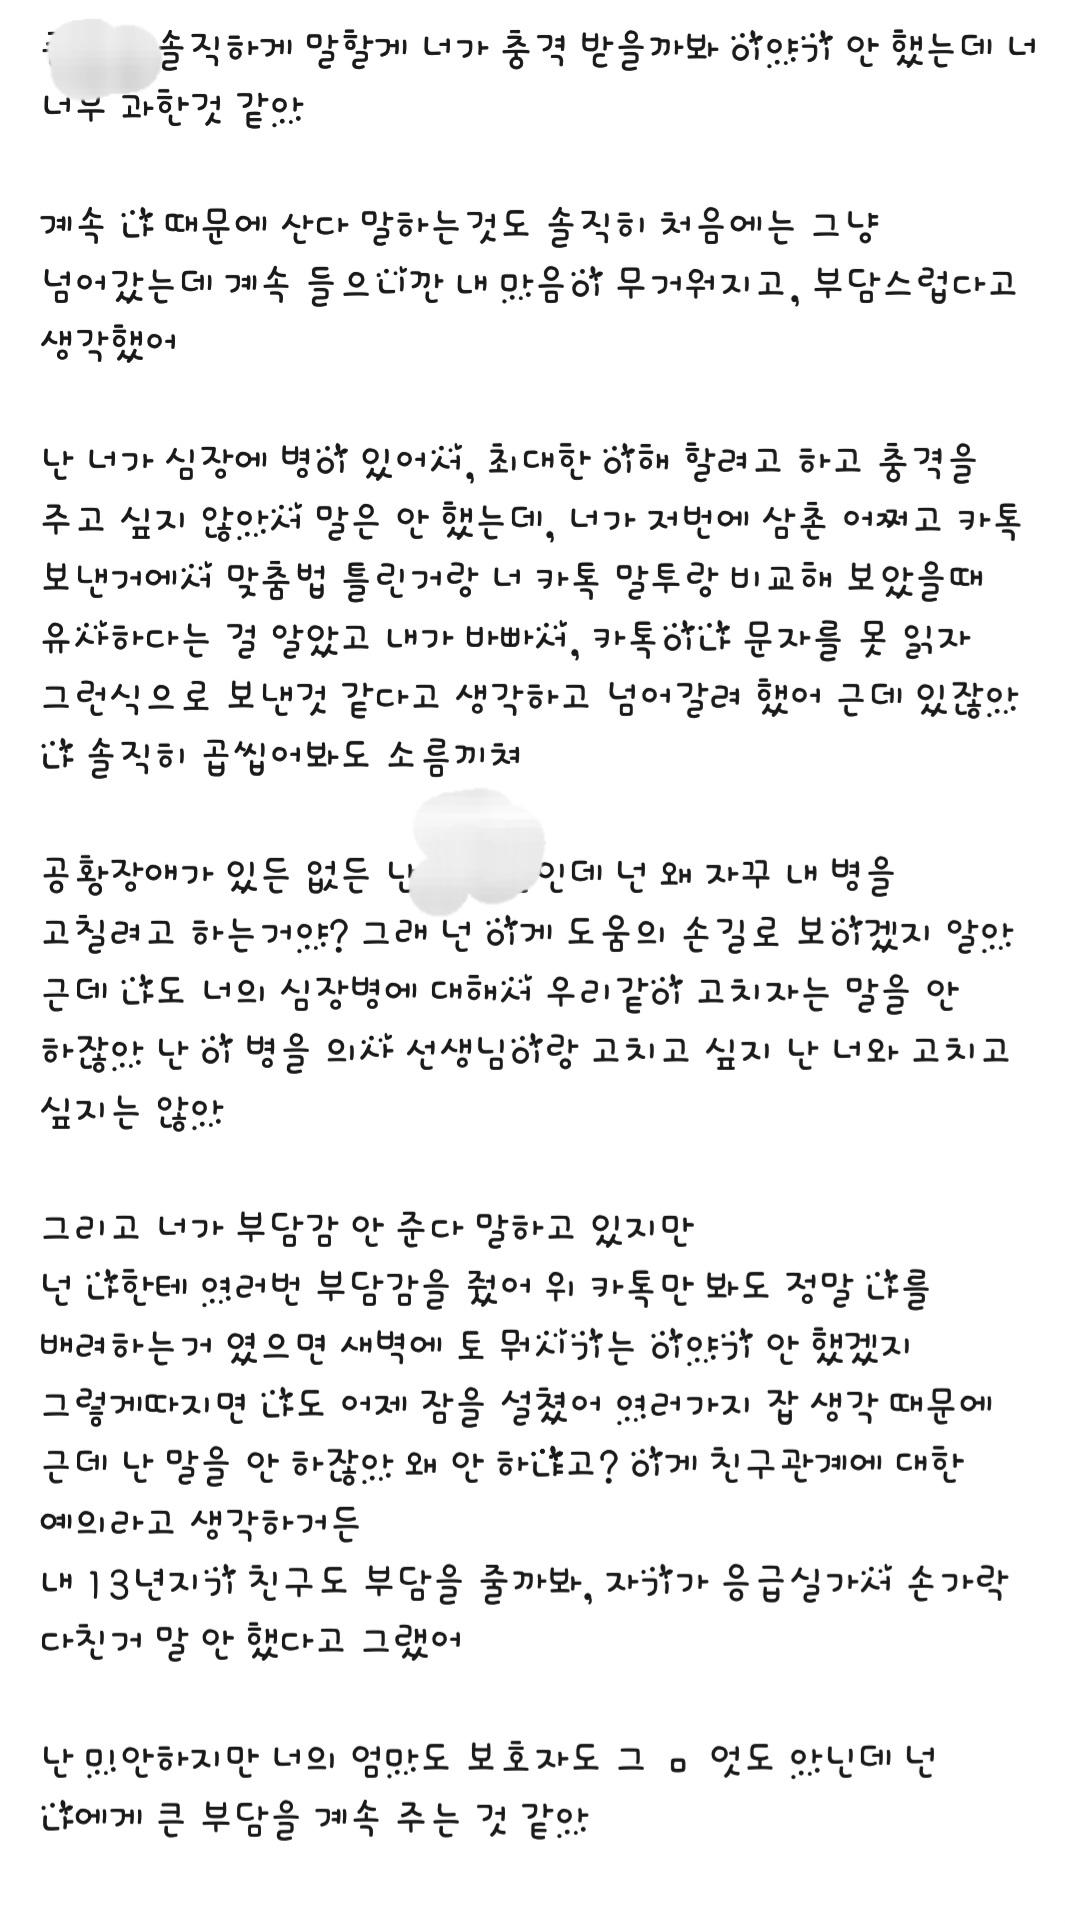 솔직하게 말할게 너가 충격 받을까봐 이야기 안 했는데 너
너무 과한것 같아
계속 나 때문에 산다 말하는것도 솔직히 처음에는 그냥
넘어갔는데 계속 들으니깐 내 마음이 무거워지고, 부담스럽다고
생각했어
난 너가 심장에 병이 있어서, 최대한 이해 할려고 하고 충격을
주고 싶지 않아서 말은 안 했는데, 너가 저번에 삼촌 어쩌고 카톡
보낸거에서 맞춤법 틀린거랑 너 카톡 말투랑 비교해 보았을때
유사하다는 걸 알았고 내가 바빠서, 카톡이나 문자를 못 읽자
그런식으로 보낸것 같다고 생각하고 넘어갈려 했어 근데 있잖아
나 솔직히 곱씹어봐도 소름끼쳐
공황장애가 있든 없든 난 인데 넌 왜 자꾸 내 병을
고칠려고 하는거야? 그래 넌 이게 도움의 손길로 보이겠지 알아
근데 나도 너의 심장병에 대해서 우리같이 고치자는 말을 안
하잖아 난 이 병을 의사 선생님이랑 고치고 싶지 난 너와 고치고
싶지는 않아
그리고 너가 부담감 안 준다 말하고 있지만
넌 나한테 여러번 부담감을 줬어 위 카톡만 봐도 정말 나를
배려하는거 였으면 새벽에 토 뭐시기는 이야기 안 했겠지
그렇게따지면 나도 어제 잠을 설쳤어 여러가지 잡 생각 때문에
근데 난 말을 안 하잖아 왜 안 하냐고? 이게 친구관계에 대한
예의라고 생각하거든
내 13년지기 친구도 부담을 줄까봐, 자기가 응급실가서 손가락
다친거 말 안 했다고 그랬어
난 미안하지만 너의 엄마도 보호자도 그 ㅁ 엇도 아닌데 넌
나에게 큰 부담을 계속 주는 것 같아